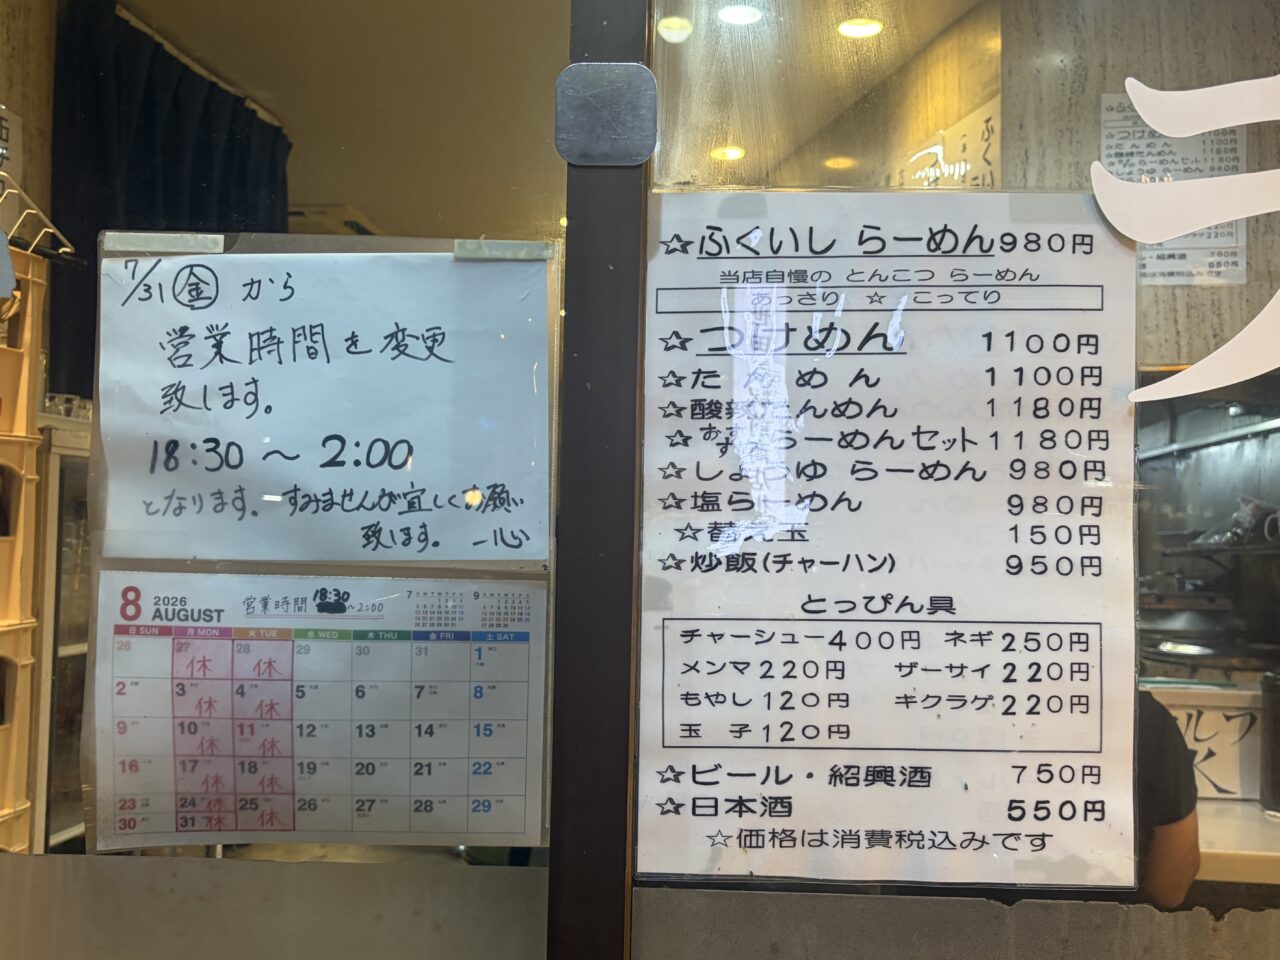 7/31 金 から
営業時間を変更
致します。
18:30 ～ 2:00
となります。すみませんが宜しくお願い
致します。 一心
8 2026 AUGUST 営業時間 18:30～2:00 7 9
日 SUN 月 MON 火 TUE 水 WED 木 THU 金 FRI 土 SAT
26 27 休 28 休 29 30 31 1
2 3 休 4 休 5 6 7 8
9 10 休 11 休 12 13 14 15
16 17 休 18 休 19 20 21 22
23 24 休 25 休 26 27 28 29
30 31 休
☆ふくいし らーめん 980円
当店自慢の とんこつ らーめん
あっさり ☆ こってり
☆つけめん 1100円
☆たんめん 1100円
☆酸辣たんめん 1180円
☆おすすめ らーめんセット 1180円
☆しょうゆ らーめん 980円
☆塩らーめん 980円
☆替え玉 150円
☆炒飯(チャーハン) 950円
とっぴん具
チャーシュー 400円 ネギ 250円
メンマ 220円 ザーサイ 220円
もやし 120円 キクラゲ 220円
玉子 120円
☆ビール・紹興酒 750円
☆日本酒 550円
☆価格は消費税込みです